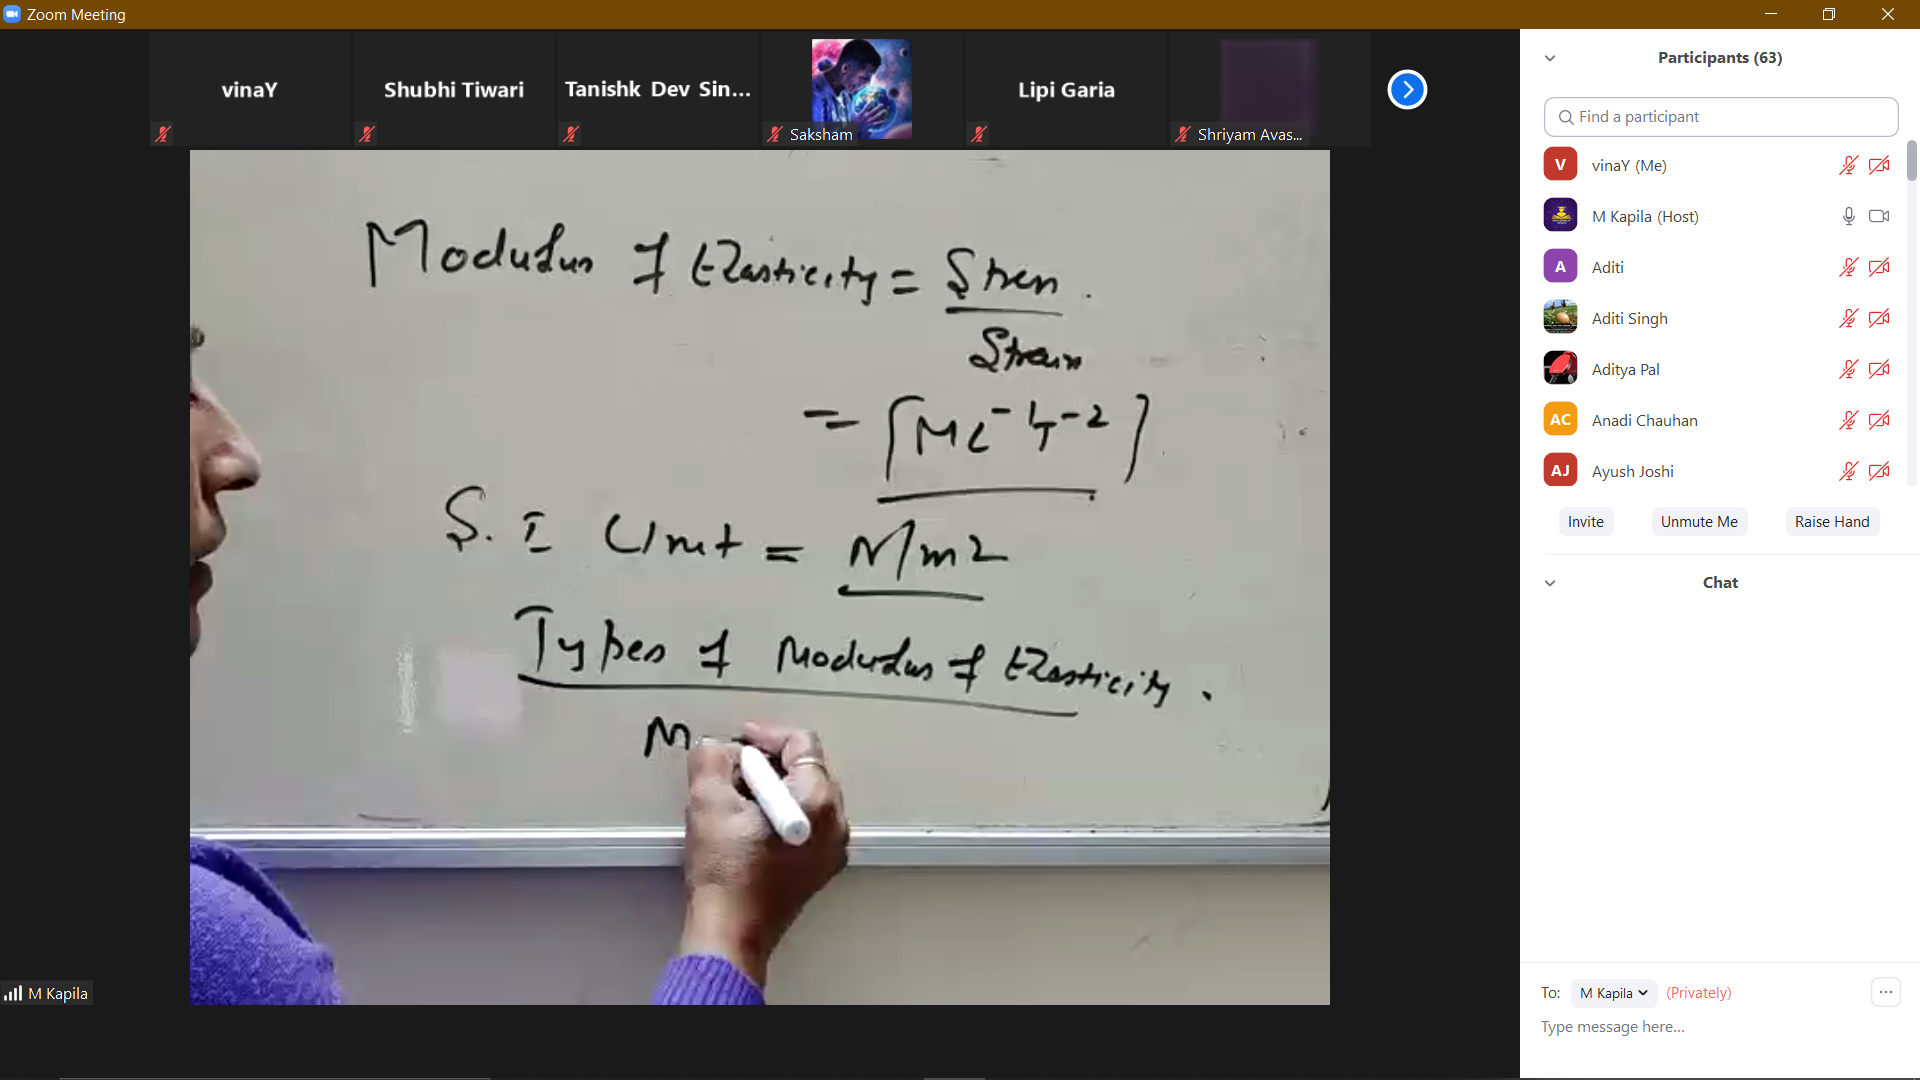 Zoom Meeting
vinaY
Shubhi Tiwari
Tanishk Dev Sin...
Saksham
Lipi Garia
Shriyam Avas...
Modulus of Elasticity = Stress
Strain
= [ML-1T-2]
S. I Unit = N/m2
Types of Modulus of Elasticity.
M
M Kapila
Participants (63)
Find a participant
V vinaY (Me)
M Kapila (Host)
A Aditi
Aditi Singh
Aditya Pal
AC Anadi Chauhan
AJ Ayush Joshi
Invite Unmute Me Raise Hand
Chat
To: M Kapila (Privately)
Type message here...